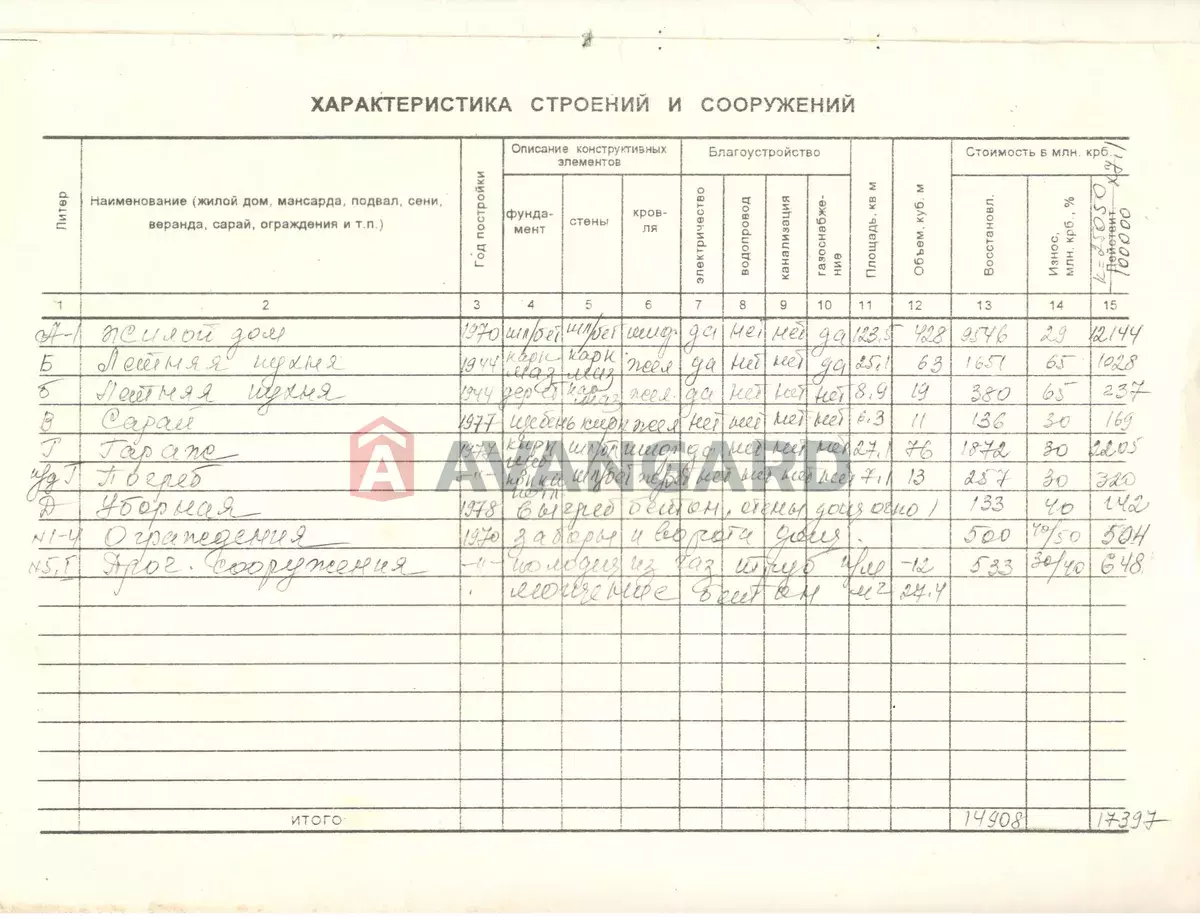 ХАРАКТЕРИСТИКА СТРОЕНИЙ И СООРУЖЕНИЙ
Литер
Наименование (жилой дом, мансарда, подвал, сени, веранда, сарай, ограждения и т.п.)
Год постройки
Описание конструктивных элементов
фунда-мент
стены
кров-ля
Благоустройство
электричество
водопровод
канализация
газоснабже-ние
Площадь, кв м
Объем, куб. м
Стоимость в млн. крб.
Восстановл.
Износ, млн. крб., %
Действит.
к=25050
100000
1 2 3 4 5 6 7 8 9 10 11 12 13 14 15
А-1 Жилой дом 1970 шл/бет шл/бет шиф. да нет нет да 123.5 428 9546 29 12144
Б Летняя кухня 1944 карк маз карк маз жел да нет нет да 25.1 63 1651 65 1028
б Летняя кухня 1944 маз жел. да нет нет нет 8.9 19 380 65 237
В Сарай 1977 кирп жел нет нет нет нет 6.3 11 136 30 169
Г Гараж 1977 шл/бт да нет нет нет 27.1 76 1872 30 2205
Под Г Погреб -"- шл/бет нет нет нет нет 7.1 13 257 30 320
Д Уборная 1978 выгреб бетон, стены 133 40 142
N1-4 Ограждения 1970 заборы и ворота 500 40/50 504
N5,I Проч. сооружения -"- из газ труб п/м -12 533 30/40 648
мощение бетон м2 27.4
ИТОГО 14908 17397
AVANGARD